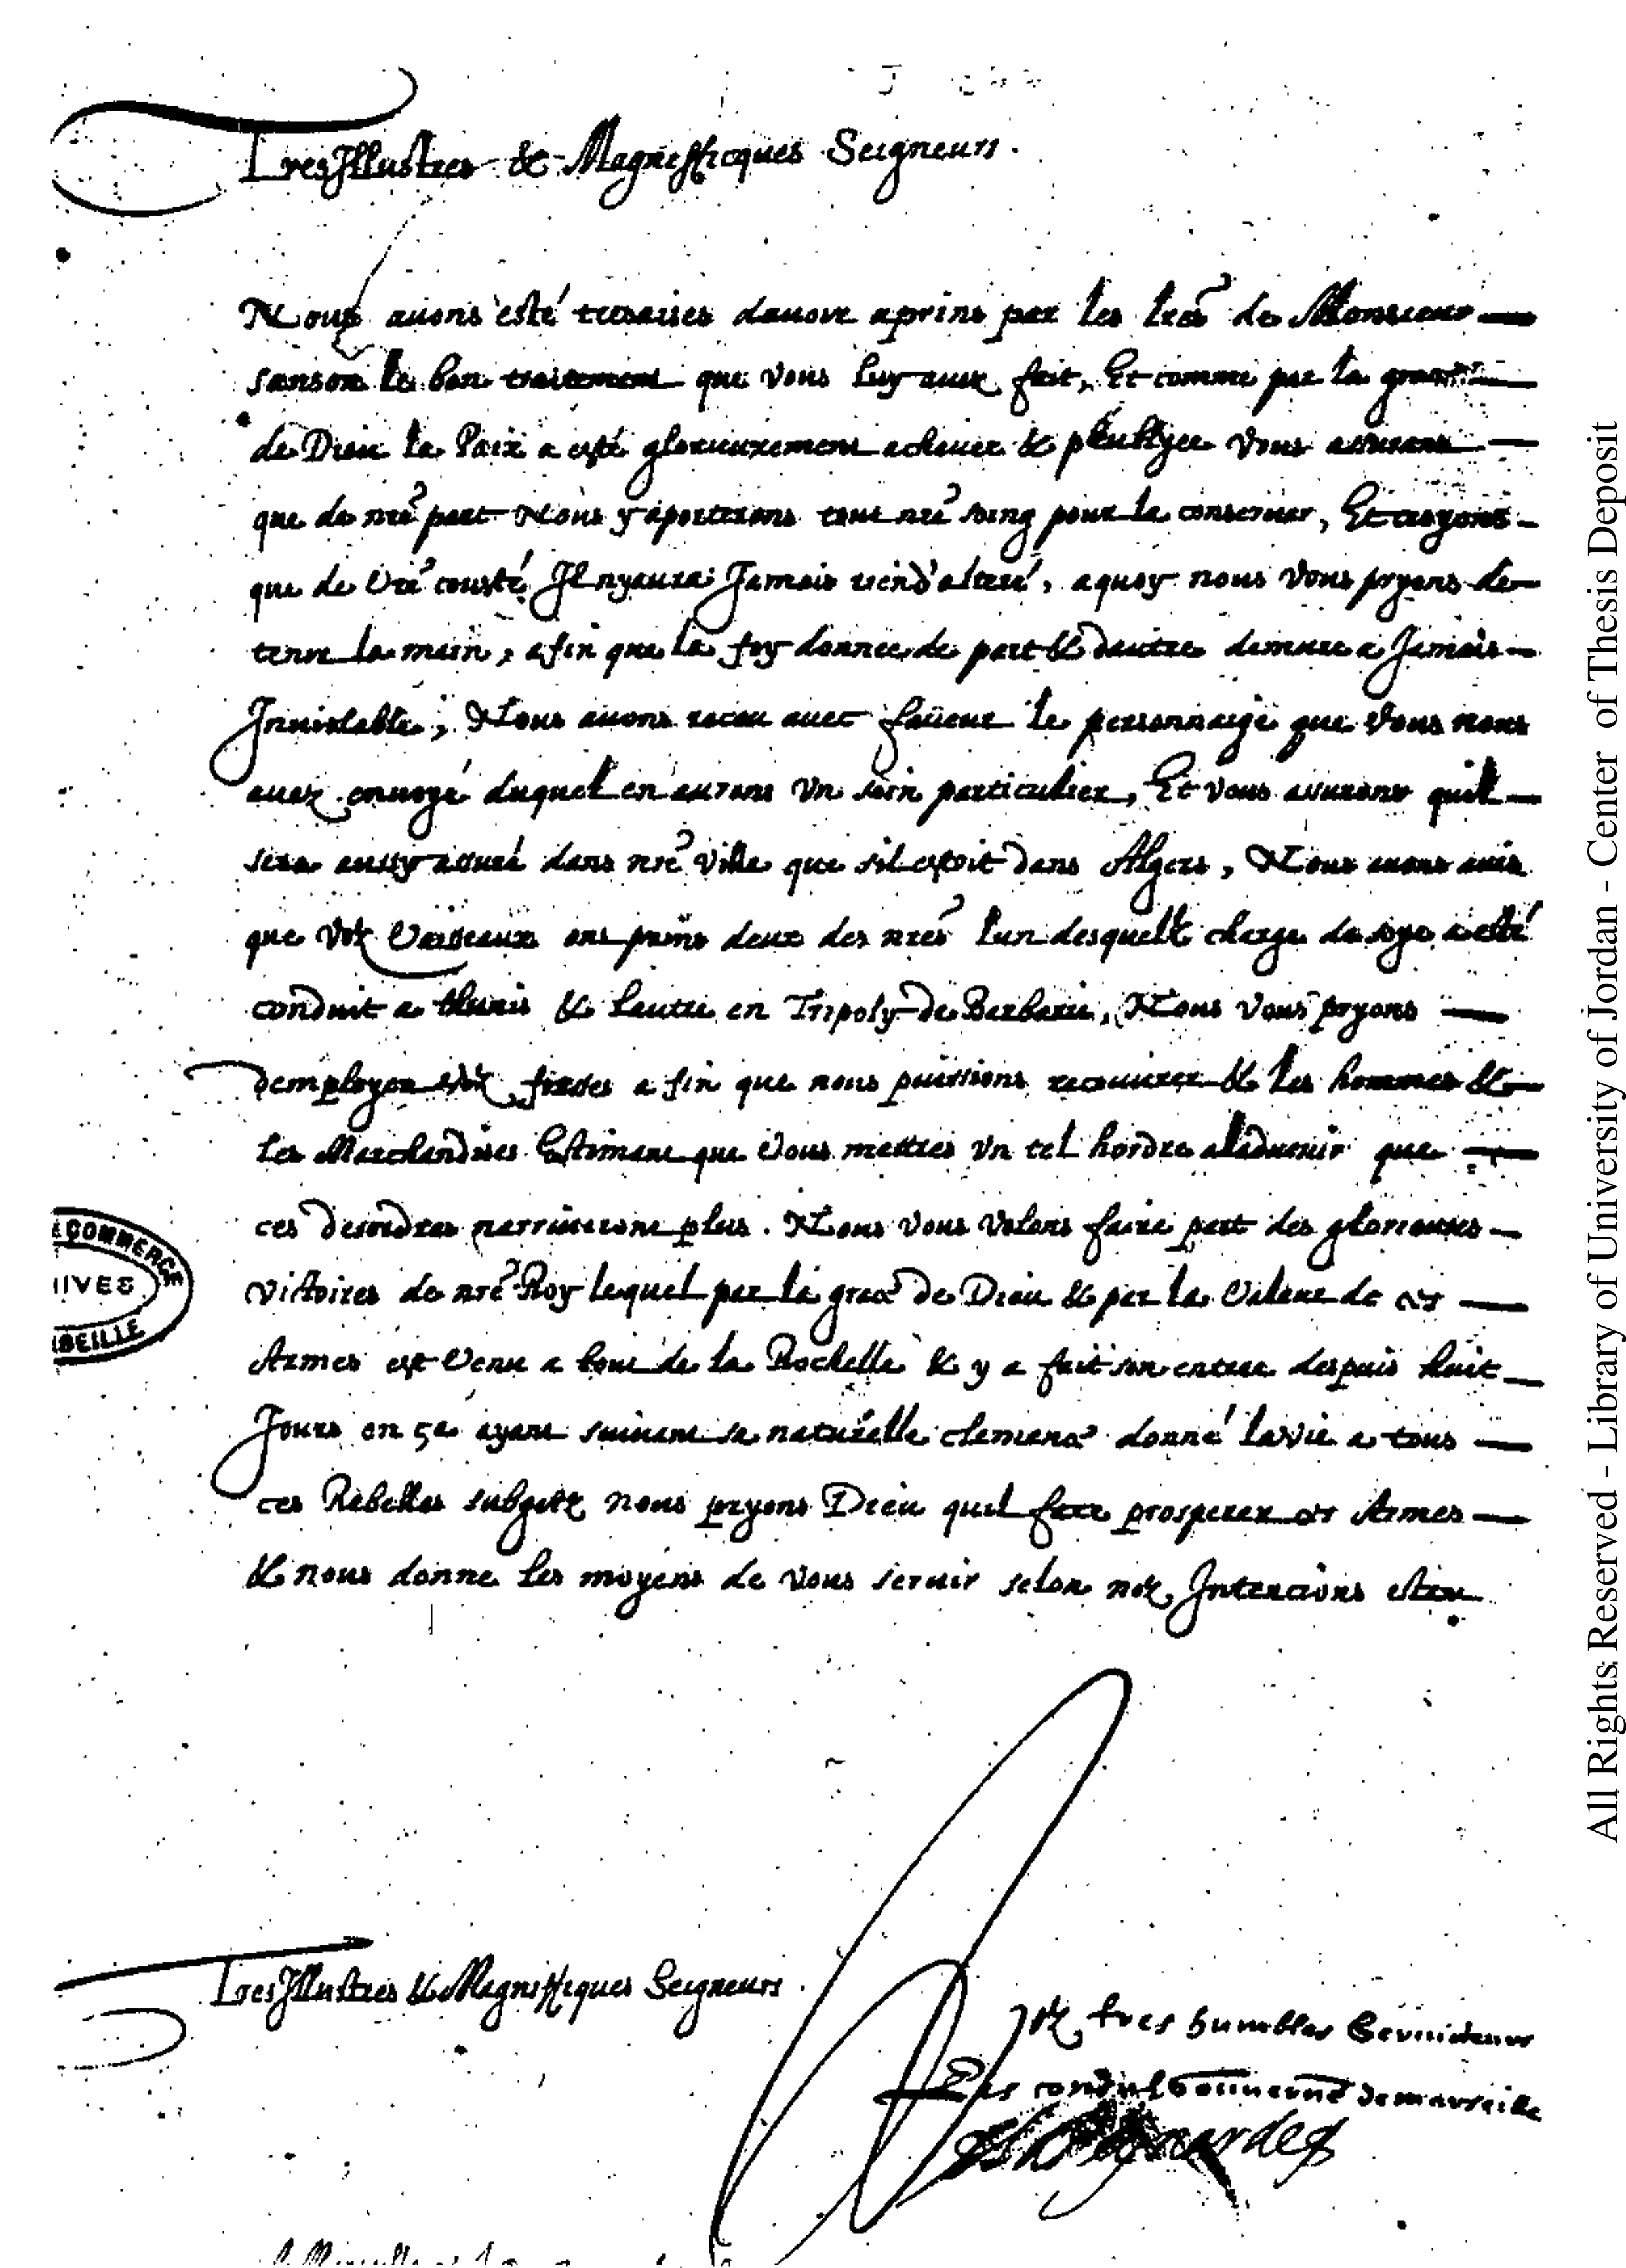 Tres Illustres & Magnifficques Seigneurs.
Nous auons esté tresaises dauoir aprins par les lres de Monsieur
sanson le bon traitement que vous luy auez fait, Et comme par la
de Dieu la Paix a esté glorieuxement acheuee & vous assurans
que de nre part Nous y aporterons tout nre soing pour la conseruer, Et croyons
que de vre cousté Il nyaura Jamais rien d'alteré, aquoy nous vous pryons de
tenir la main, afin que la foy donnee de part & dautre demure a Jamais
Inuiolable, Nous auons receu auec faueur le personnaige que vous nous
auez enuoyé duquel en aurons vn soin particulier, Et vous assurons quil
sera aussy assuré dans nre ville que sil estoit dans Algers, Nous auons auis
que voz vaisseaux ont prins deux des nres lun desquelz charge de soye a esté
conduit a thunis & lautre en Tripoly de Barbarie, Nous vous pryons
demployer voz a fin que nous puissions recouurer & les hommes &
les Marchandises Estimant que vous mettres vn tel hordre aladuenir que
ces desordres narriueront plus. Nous vous volons faire part des glorieuses
victoires de nre Roy lequel par la grace de Dieu & par la valeur de ces
Armes est venu a bout de la Rochelle & y a fait son entree despuis huit
Jours en ça ayant suiuant sa naturelle clemence donné la vie a tous
ces Rebelles subgetz nous pryons Dieu quil face prosperer ces Armes
& nous donne les moyens de vous seruir selon noz Intencions
Tres Illustres & Magniffiques Seigneurs.
Voz tres humbles Seruiteurs
Les de marseille
E COMMERCE
IIVES
SEILLE
All Rights Reserved - Library of University of Jordan - Center of Thesis Deposit